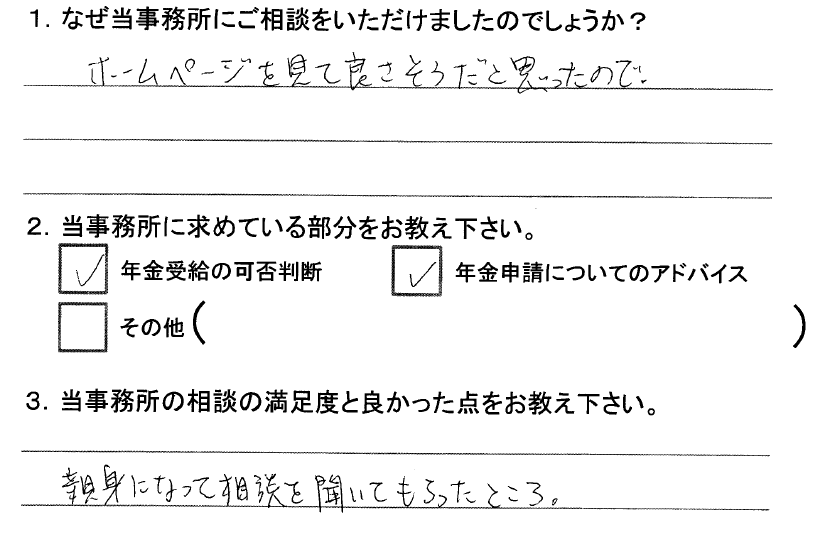 1. なぜ当事務所にご相談をいただけましたのでしょうか？
ホームページを見て良さそうだと思ったので。
2. 当事務所に求めている部分をお教え下さい。
✓ 年金受給の可否判断 ✓ 年金申請についてのアドバイス
その他( )
3. 当事務所の相談の満足度と良かった点をお教え下さい。
親身になって相談を聞いてもらったところ。